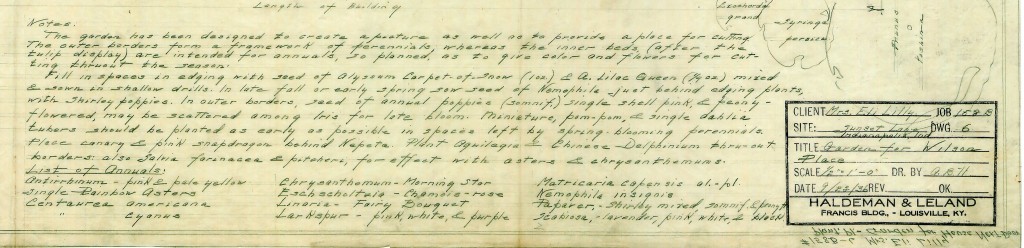 Length of Building
Notes.
The garden has been designed to create a picture as well as to provide a place for cutting.
The outer borders form a framework of perennials, whereas the inner beds, (after the
tulip display) are intended for annuals, so planned, as to give color and flowers for cut-
ting thruout the season.
Fill in spaces in edging with seed of Alyssum Carpet-of-Snow (1oz) & A. Lilac Queen (½oz) mixed
& sown in shallow drills. In late fall or early spring sow seed of Nemophila just behind edging plants,
with Shirley poppies. In outer borders, seed of annual poppies (somnif.) single shell pink, & peony-
flowered, may be scattered among Iris for late bloom. Miniature, pom-pom, & single dahlia
tubers should be planted as early as possible in spaces left by spring-blooming perennials.
Place canary & pink snapdragon behind Nepeta. Plant Aquilegia & Chinese Delphinium thru-out
borders: also Salvia farinacea & pitcheri, for effect with asters & chrysanthemums.
List of Annuals:
Antirrhinum - pink & pale yellow
Single Rainbow Asters
Centaurea americana
" Cyanus
Chrysanthemum - Morning Star
Eschscholtzia - Chamois-rose
Linaria - Fairy Bouquet
Larkspur - pink, white, & purple
Matricaria capensis al. pl.
Nemophila insignis
Papaver - Shirley mixed, somnif. & peony fl.
Scabiosa - lavender, pink, white, & black
Exochorda
grand.
Syringa
persica
CLIENT Mrs. Eli Lilly JOB 1528 B
SITE: Sunset Lane DWG. 6
Indianapolis, Ind.
TITLE Garden for Wilson
Place
SCALE ⅛"=1'-0" DR. BY A.B.H
DATE 9/23/36 REV. OK.
HALDEMAN & LELAND
FRANCIS BLDG., - LOUISVILLE, KY.
Plant Pl - Garden for House Next Door
#1528-B Mrs. Eli Lilly